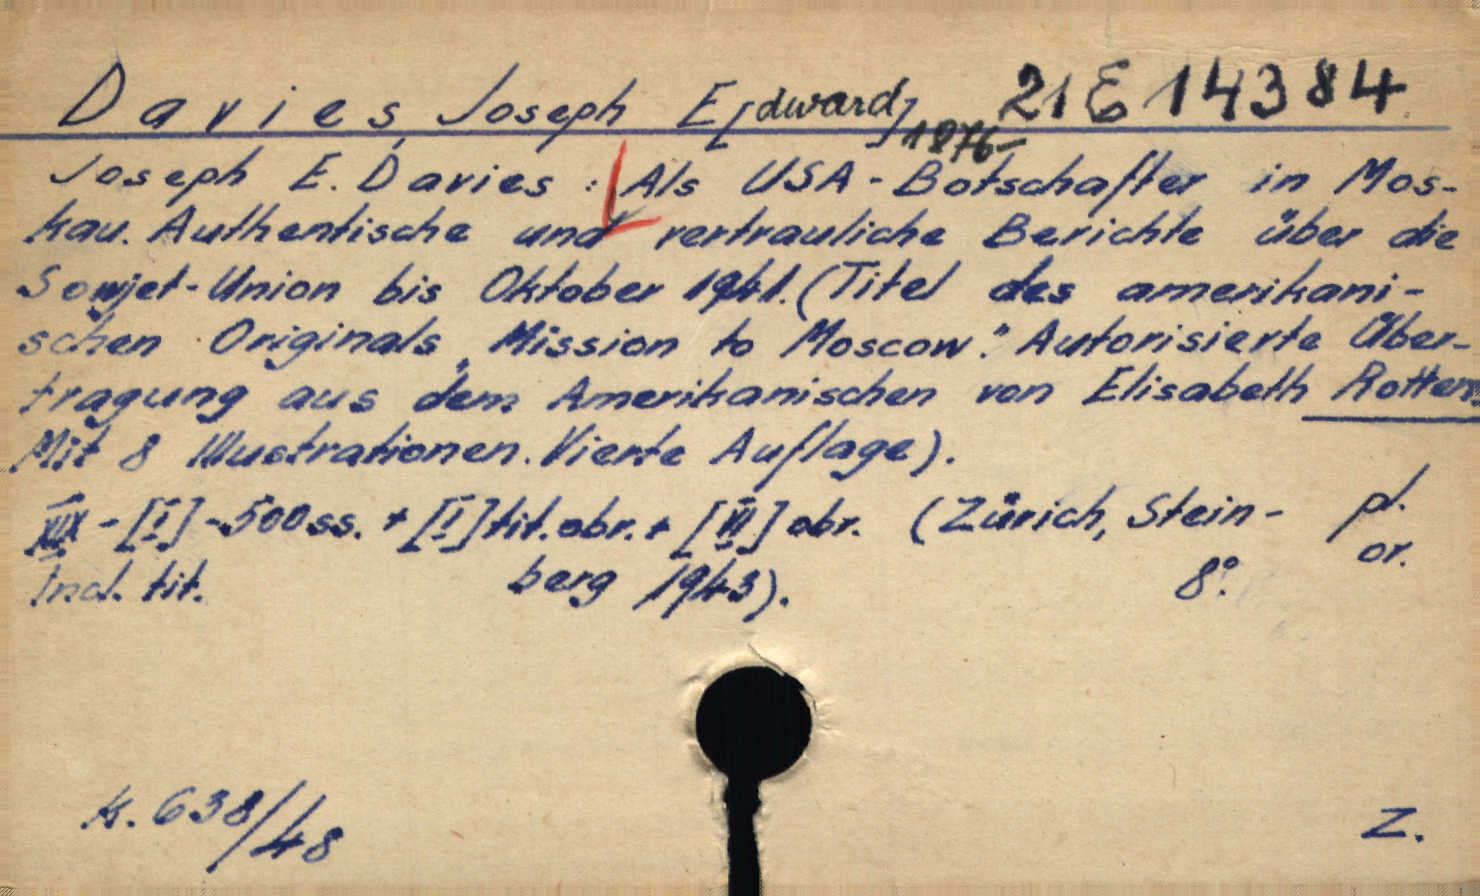 Davies, Joseph E[dward] 21 E 14384
1876-
Joseph E. Davies: Als USA-Botschafter in Mos-
kau. Authentische und vertrauliche Berichte über die
Sowjet-Union bis Oktober 1941. (Titel des amerikani-
schen Originals „Mission to Moscow". Autorisierte Über-
tragung aus dem Amerikanischen von Elisabeth Rotten.
Mit 8 Illustrationen. Vierte Auflage).
XIX-[I]-500 ss. + [I] tit. abr. + [VI] abr. (Zürich, Stein- pl.
or.
Incl. tit. berg 1943). 8°.
K. 638/48 Z.